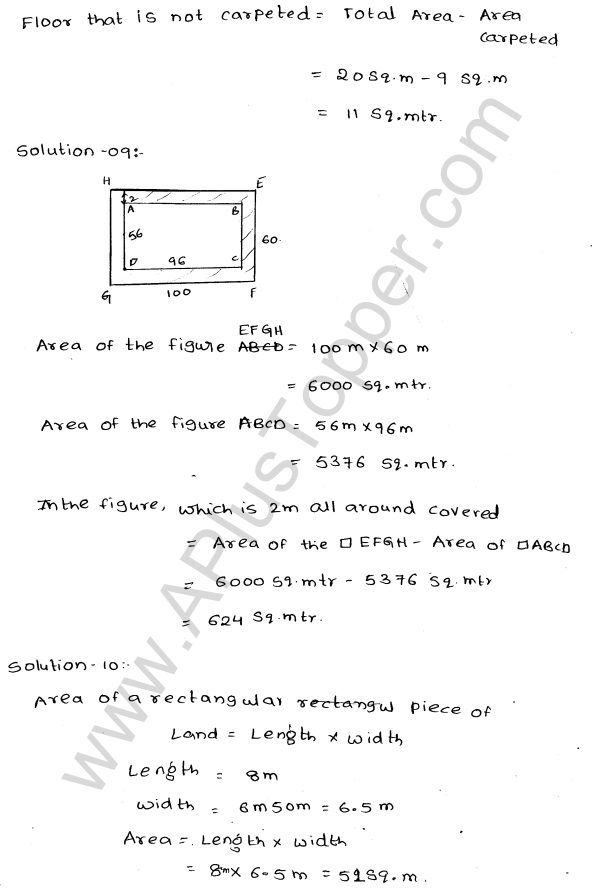 Floor that is not carpeted = Total Area - Area
carpeted
= 20 Sq.m - 9 Sq.m
= 11 Sq.mtr.
Solution -09:-
H E
2
A B
56 60.
D 96 C
G 100 F
EFGH
Area of the figure ABCD = 100 m × 60 m
= 6000 Sq.mtr.
Area of the figure ABCD = 56m × 96m
= 5376 Sq.mtr.
In the figure, which is 2m all around covered
= Area of the □ EFGH - Area of □ABCD
= 6000 Sq.mtr - 5376 Sq.mtr
= 624 Sq.mtr.
Solution - 10:-
Area of a rectangular rectangu piece of
Land = Length × width
Length = 8m
width = 6m50m = 6.5 m
Area = Length × width
= 8m × 6.5 m = 52Sq.m.
www.APlusTopper.com